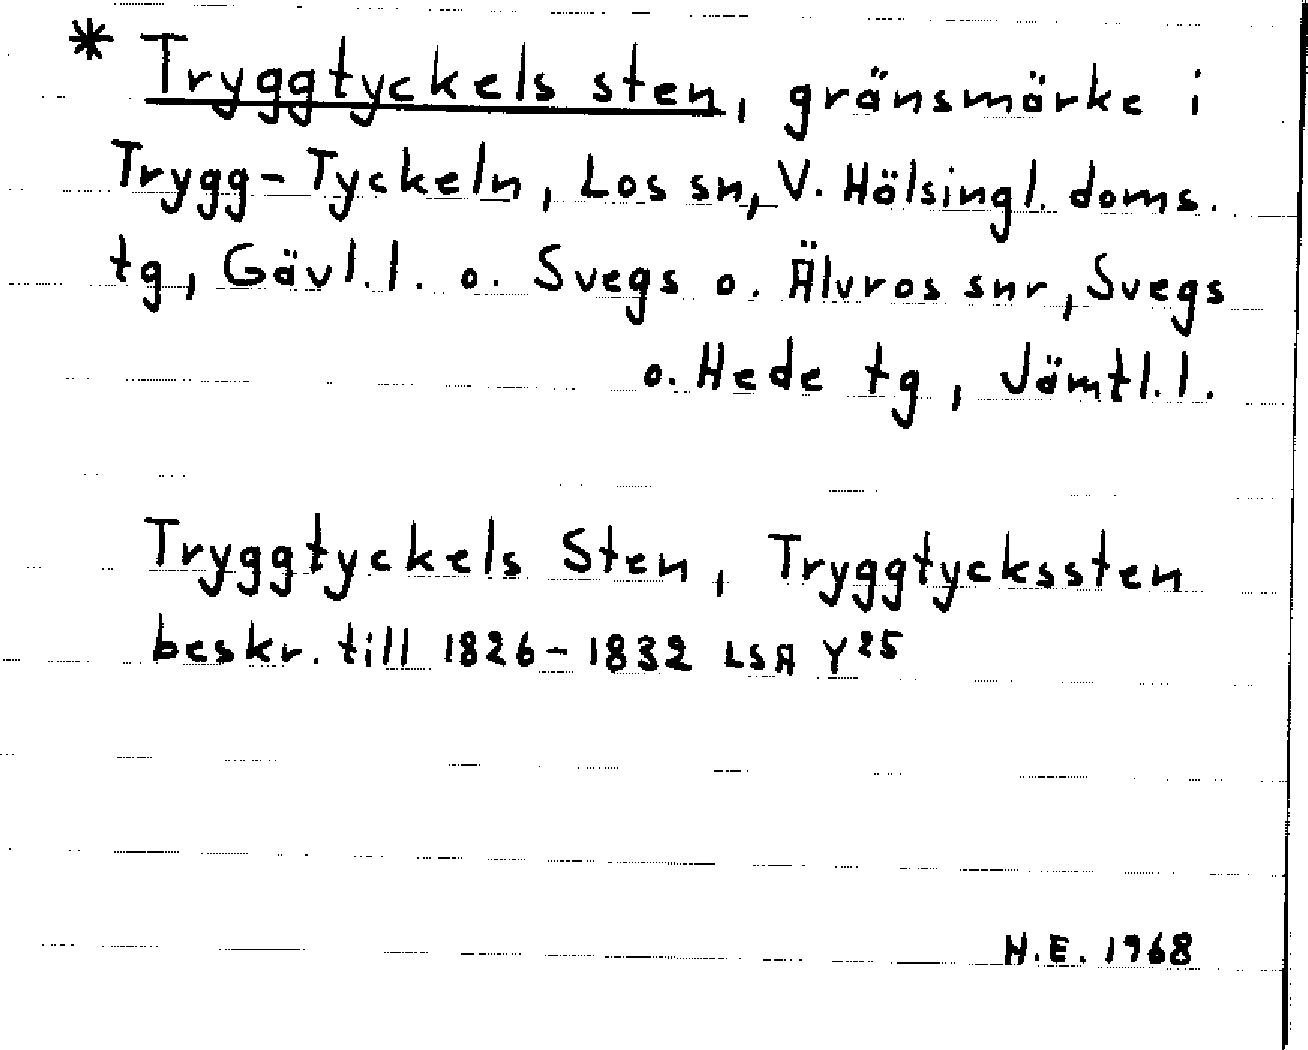 * Tryggtyckels sten, gränsmärke i
Trygg-Tyckeln, Los sn, V. Hälsingl. doms.
tg, Gävl.l. o. Svegs o. Älvros snr, Svegs
o. Hede tg, Jämtl.l.
Tryggtyckels Sten, Tryggtyckssten
beskr. till 1826-1832 LSA Y²⁵
H.E. 1968